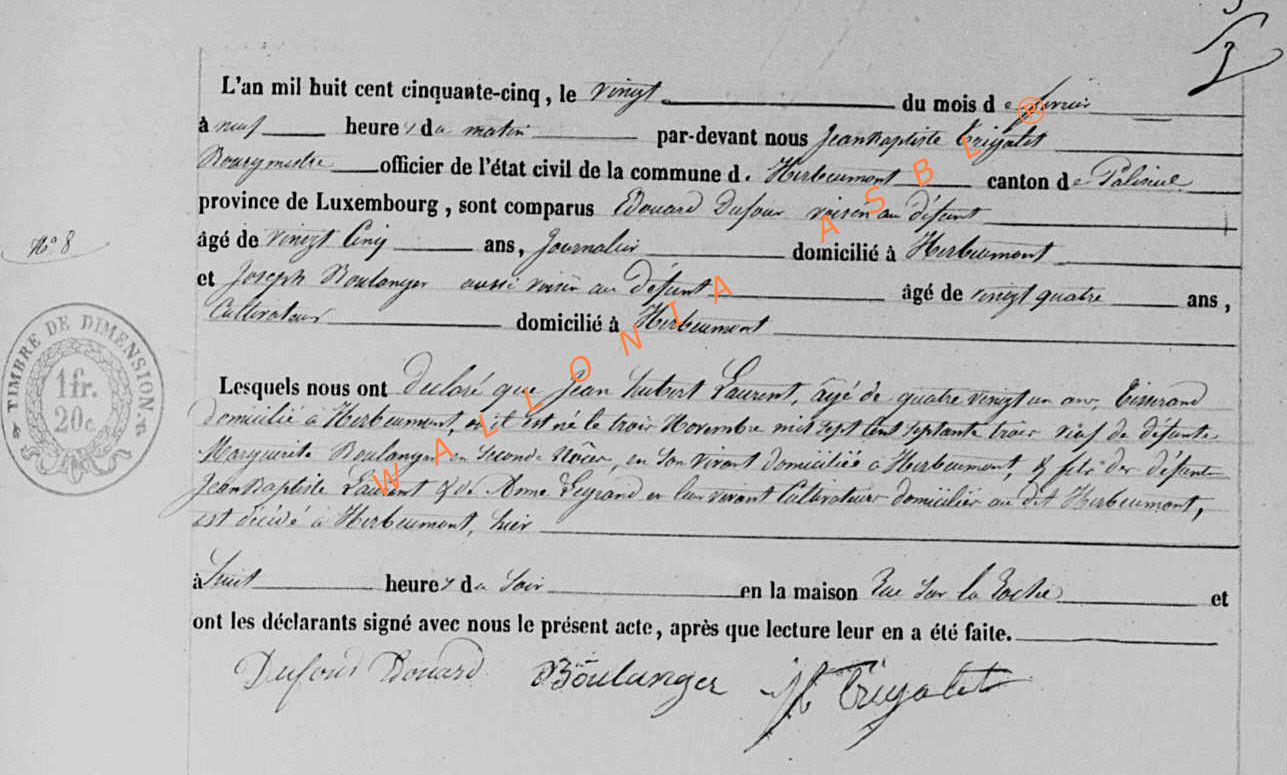 L'an mil huit cent cinquante-cinq, le vingt du mois de février
à neuf heures du matin par-devant nous Jean Baptiste Trigalet
Bourgmestre officier de l'état civil de la commune d. Herbeumont canton de Paliseul
province de Luxembourg, sont comparus Edouard Dufour voisin au défunt
âgé de vingt cinq ans, Journalier domicilié à Herbeumont
N° 8
et Joseph Boulanger aussi voisin au défunt âgé de vingt quatre ans,
Cultivateur domicilié à Herbeumont
TIMBRE DE DIMENSION.
1 fr.
20c.
Lesquels nous ont déclaré que Jean hubert Laurent, âgé de quatre vingt un ans, Tisserand
domicilié à Herbeumont, où il est né le trois Novembre mil sept cent septante trois veuf de défunte
Marguerite Boulanger en seconde Nôces, en son vivant domiciliée à Herbeumont, & fils des défunts
Jean Baptiste Laurent & de Anne Legrand en leur vivant Cultivateurs domiciliés au dit Herbeumont,
est décédé à Herbeumont, hier
à huit heures du soir en la maison Rue Sur la Roche et
ont les déclarants signé avec nous le présent acte, après que lecture leur en a été faite.
Dufour Edouard Boulanger JB Trigalet
WALLONIA ASBL ®